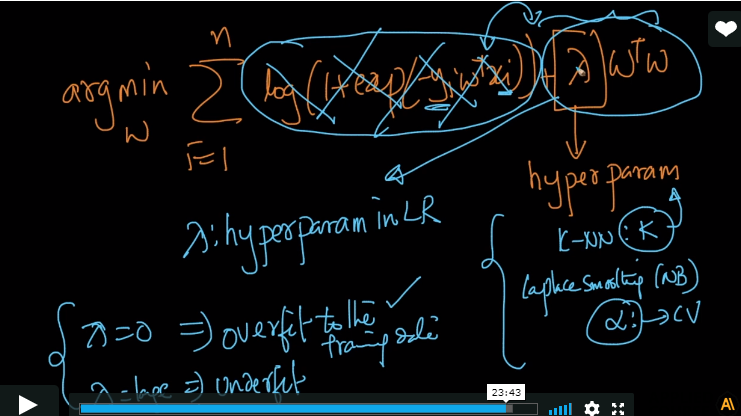 n
argmin Σ log(1+exp(-yi wᵀxi)) + [λ] wᵀw
w
i=1
hyperparam
λ: hyperparam in LR
K-NN : K
Laplace Smoothing (NB)
α: → CV
λ=0 ⇒ overfit to the
training data
λ=large ⇒ underfit
23:43